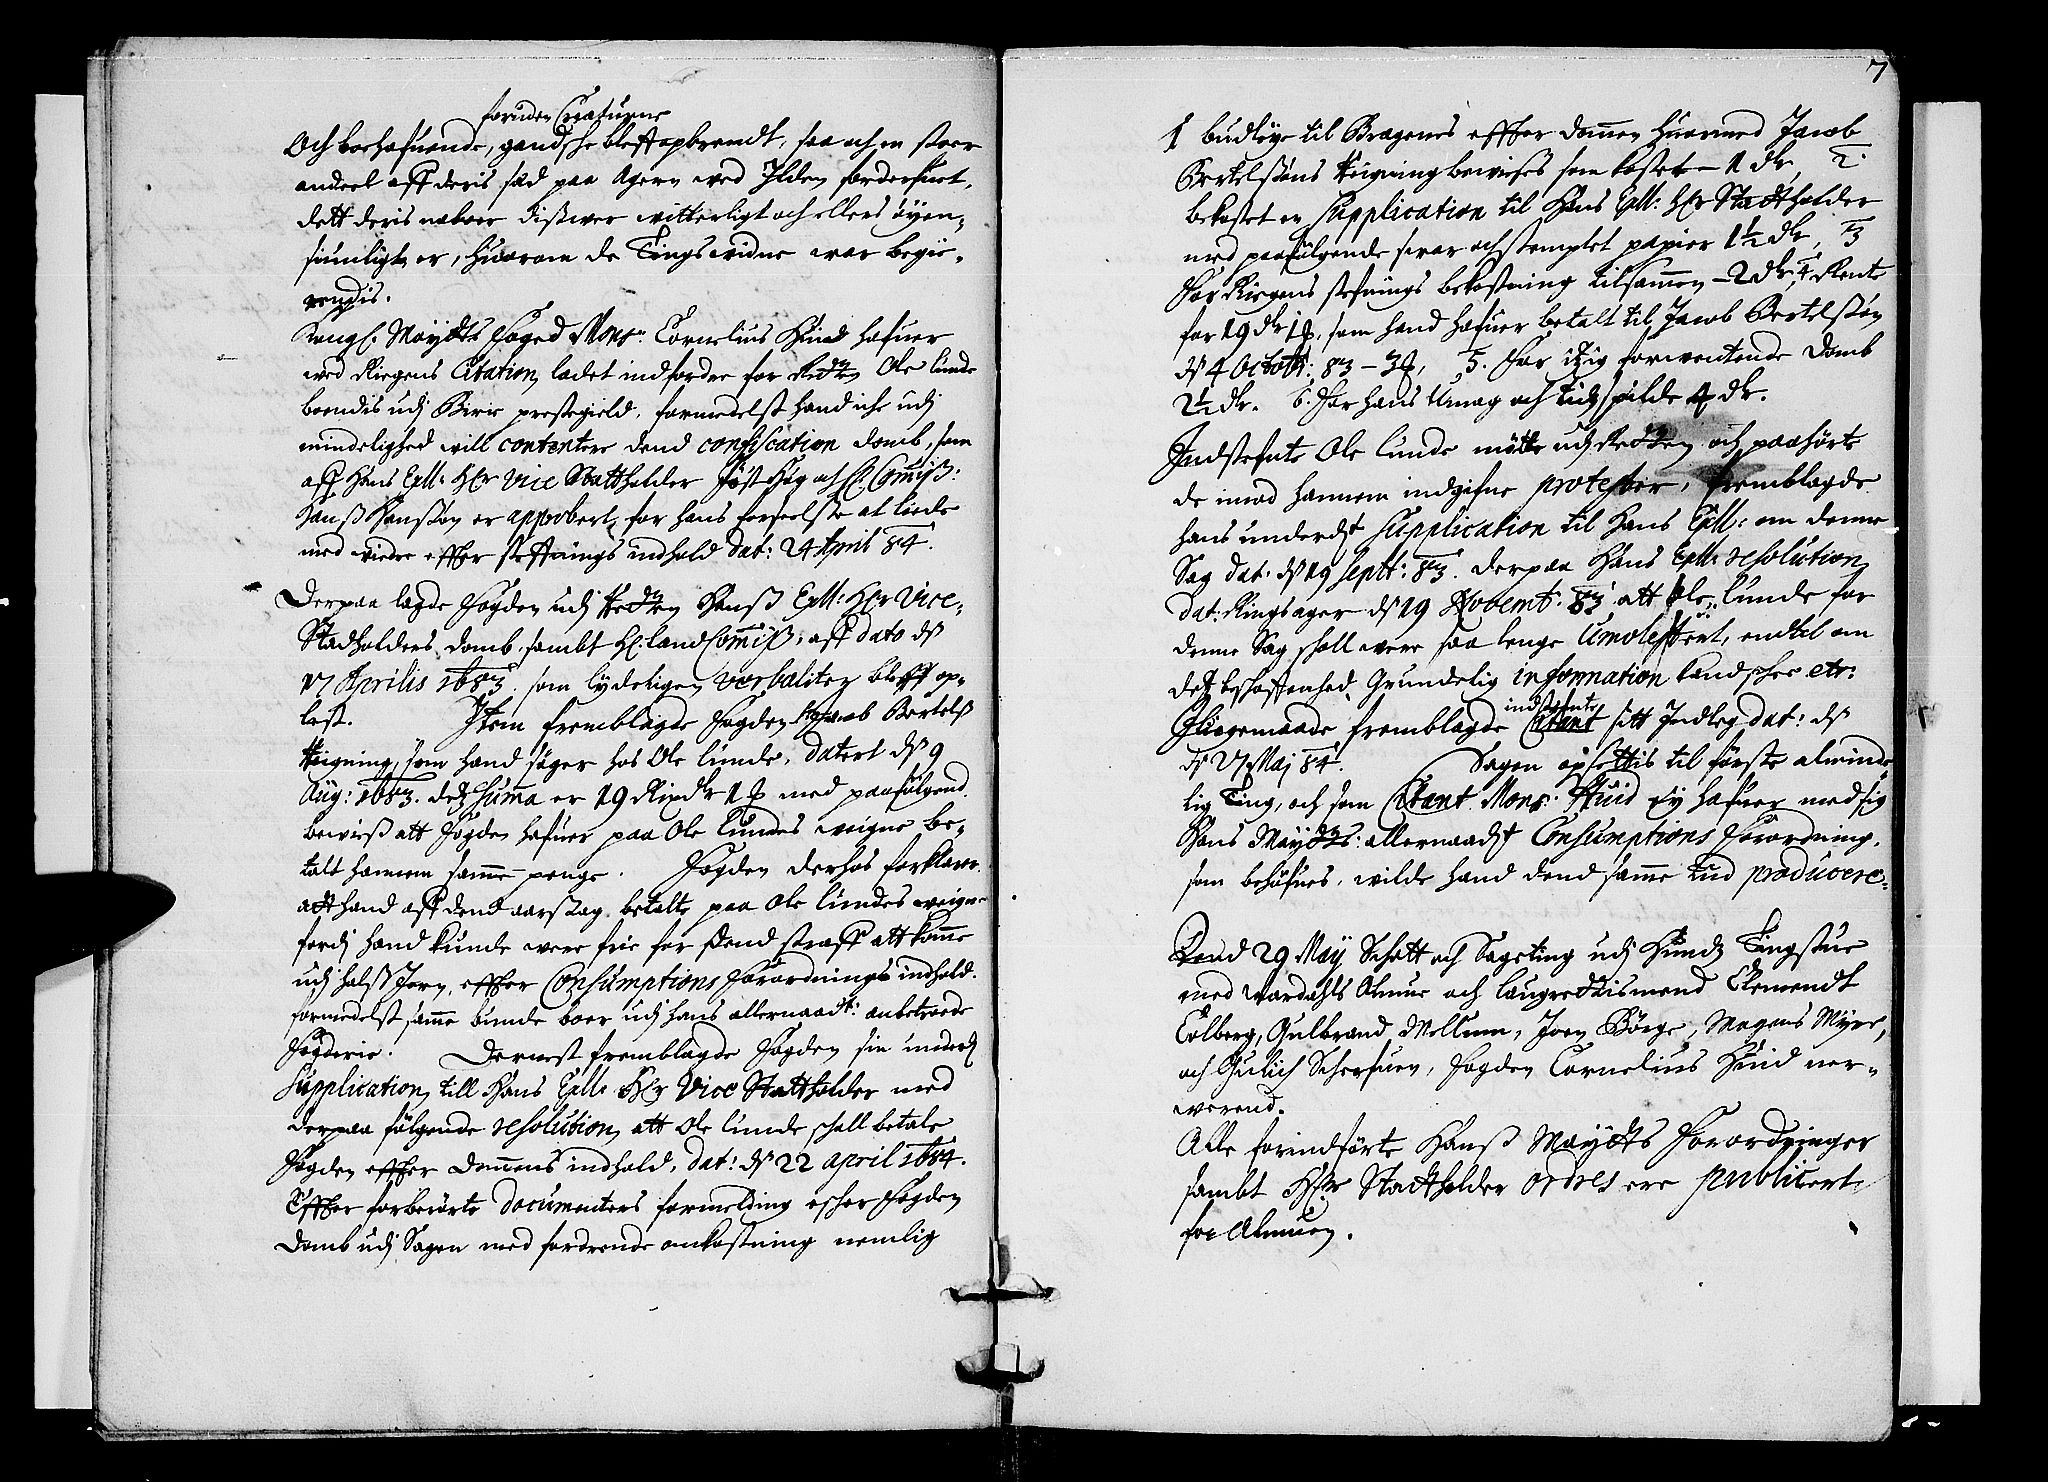 foruden Creaturne
Och boehafuende, gandsche bleff opbrendt, saa och en stoer
andeel aff deris sæd paa Ageren wed Ilden forderfuet,
dett deris naboer dissuer witterligt och ellers øyen-
siunligt er, huorom de Tingswidne war begie-
rendis.
Kongl. Maydts foged Monsr. Cornelius Huid hafuer
wed Riegens Citation ladet indfordre for Retten Ole Lunde
boendis udj Birie prestegield, formedelst hand iche udj
mindelighed will contentere dend confiscation domb, som
aff Hans Exll: Hr Vice Stattholder Just Høg och H. Commiss:
Hanß Hansøn er approbert, for hans forseelse at liide
med widre effter steffnings indhold dat: 24 April 84.
Derpaa lagde Fogden udj Retten Hanß Exll: Hr Vice-
Stadholders domb, sambt H. land Commiß: aff dato ds
17 Aprilis 1683. som lydeligen verbaliter bleff op-
lest. Item fremblagde Fogden Jacob Bertelß
Reigning, som hand søger hos Ole Lunde, datert ds 9
Aug: 1683. detz Summa er 19 Rixdlr 1 ß med paafølgend
bewiß att Fogden hafuer paa Ole Lundes weigne be-
talt hannem samme penge. Fogden derhos forklarer
att hand aff dend aarsag betalte paa Ole Lundes weigne
fordj hand kunde were frie for dend straff att komme
udj halß Jern, effter Consumptions forordnings indhold.
formedelst samme bunde boer udj hans allernaadt: anbetroede
fogderie. Dernest fremblagde Fogden sin underd
Supplication till Hans Exll: Hr Vice Statholder med
derpaa følgende resolution att Ole Lunde schall betale
Fogden effter dommens indhold, dat: ds 22 april 1684.
Effter forberørte documenters formelding esher Fogden
Domb udj Sagen med fordrende omkostning nemlig
7
1 budløye til Bragenes effter dommen huormed Jacob
Bertelsøns Reigning bewises som kostet – 1 dlr, 2.
bekostet en Supplication til Hans Exll: Hr Stadtholder
med paafølgende swar och stemplet papier 1½ dlr, 3
For Riegens stefnings bekostning tilsammen – 2 dlr, 4 Rente
for 19 dlr 1ß, som hand hafuer betalt til Jacob Bertelsøn
ds 4 Octobr: 83 – 3ß, 5. For itzig forwentende Domb
2½ dlr. 6. For hans Umag och tidspilde 4 dlr.
Indstefnte Ole Lunde møtte udj Retten och paahørte
de imod hannem indgifne protester, fremblagde
hans underdt Supplication til Hans Exll: om denne
Sag dat: ds 19 Septr: 83. derpaa Hans Exll: resolution
dat: Ringsager ds 19 Novembr. 83 att Ole Lunde for
denne Sag schall were saa lenge Umolestert, endtil om
detz beschaffenhed Grundelig information kand schee etc:
indstefnte
Iligemaade fremblagde Citant sitt Indleg dat: ds
ds 27 Maj 84. Sagen opsettis til første alminde-
lig Ting, och som Citant Monsr: Huid ey hafuer med sig
Hans Maydts: allernaadt Consumptions forordning,
som behøfues, wilde hand dend samme tiid producere.
Dend 29 May Schatt och Sageting udj Hunds Tingstue
med Wardahls Almue och laugrettismend Clemendt
Colberg, Gulbrand Mellum, Joen Børge, Mogens Myre,
och Gulich Scherfuen, Fogden Cornelius Huid ner-
werend.
Alle forindførte Hanß Maydts Forordninger
sambt Hr Stadtholder ordres ere publicert
for Almuen.